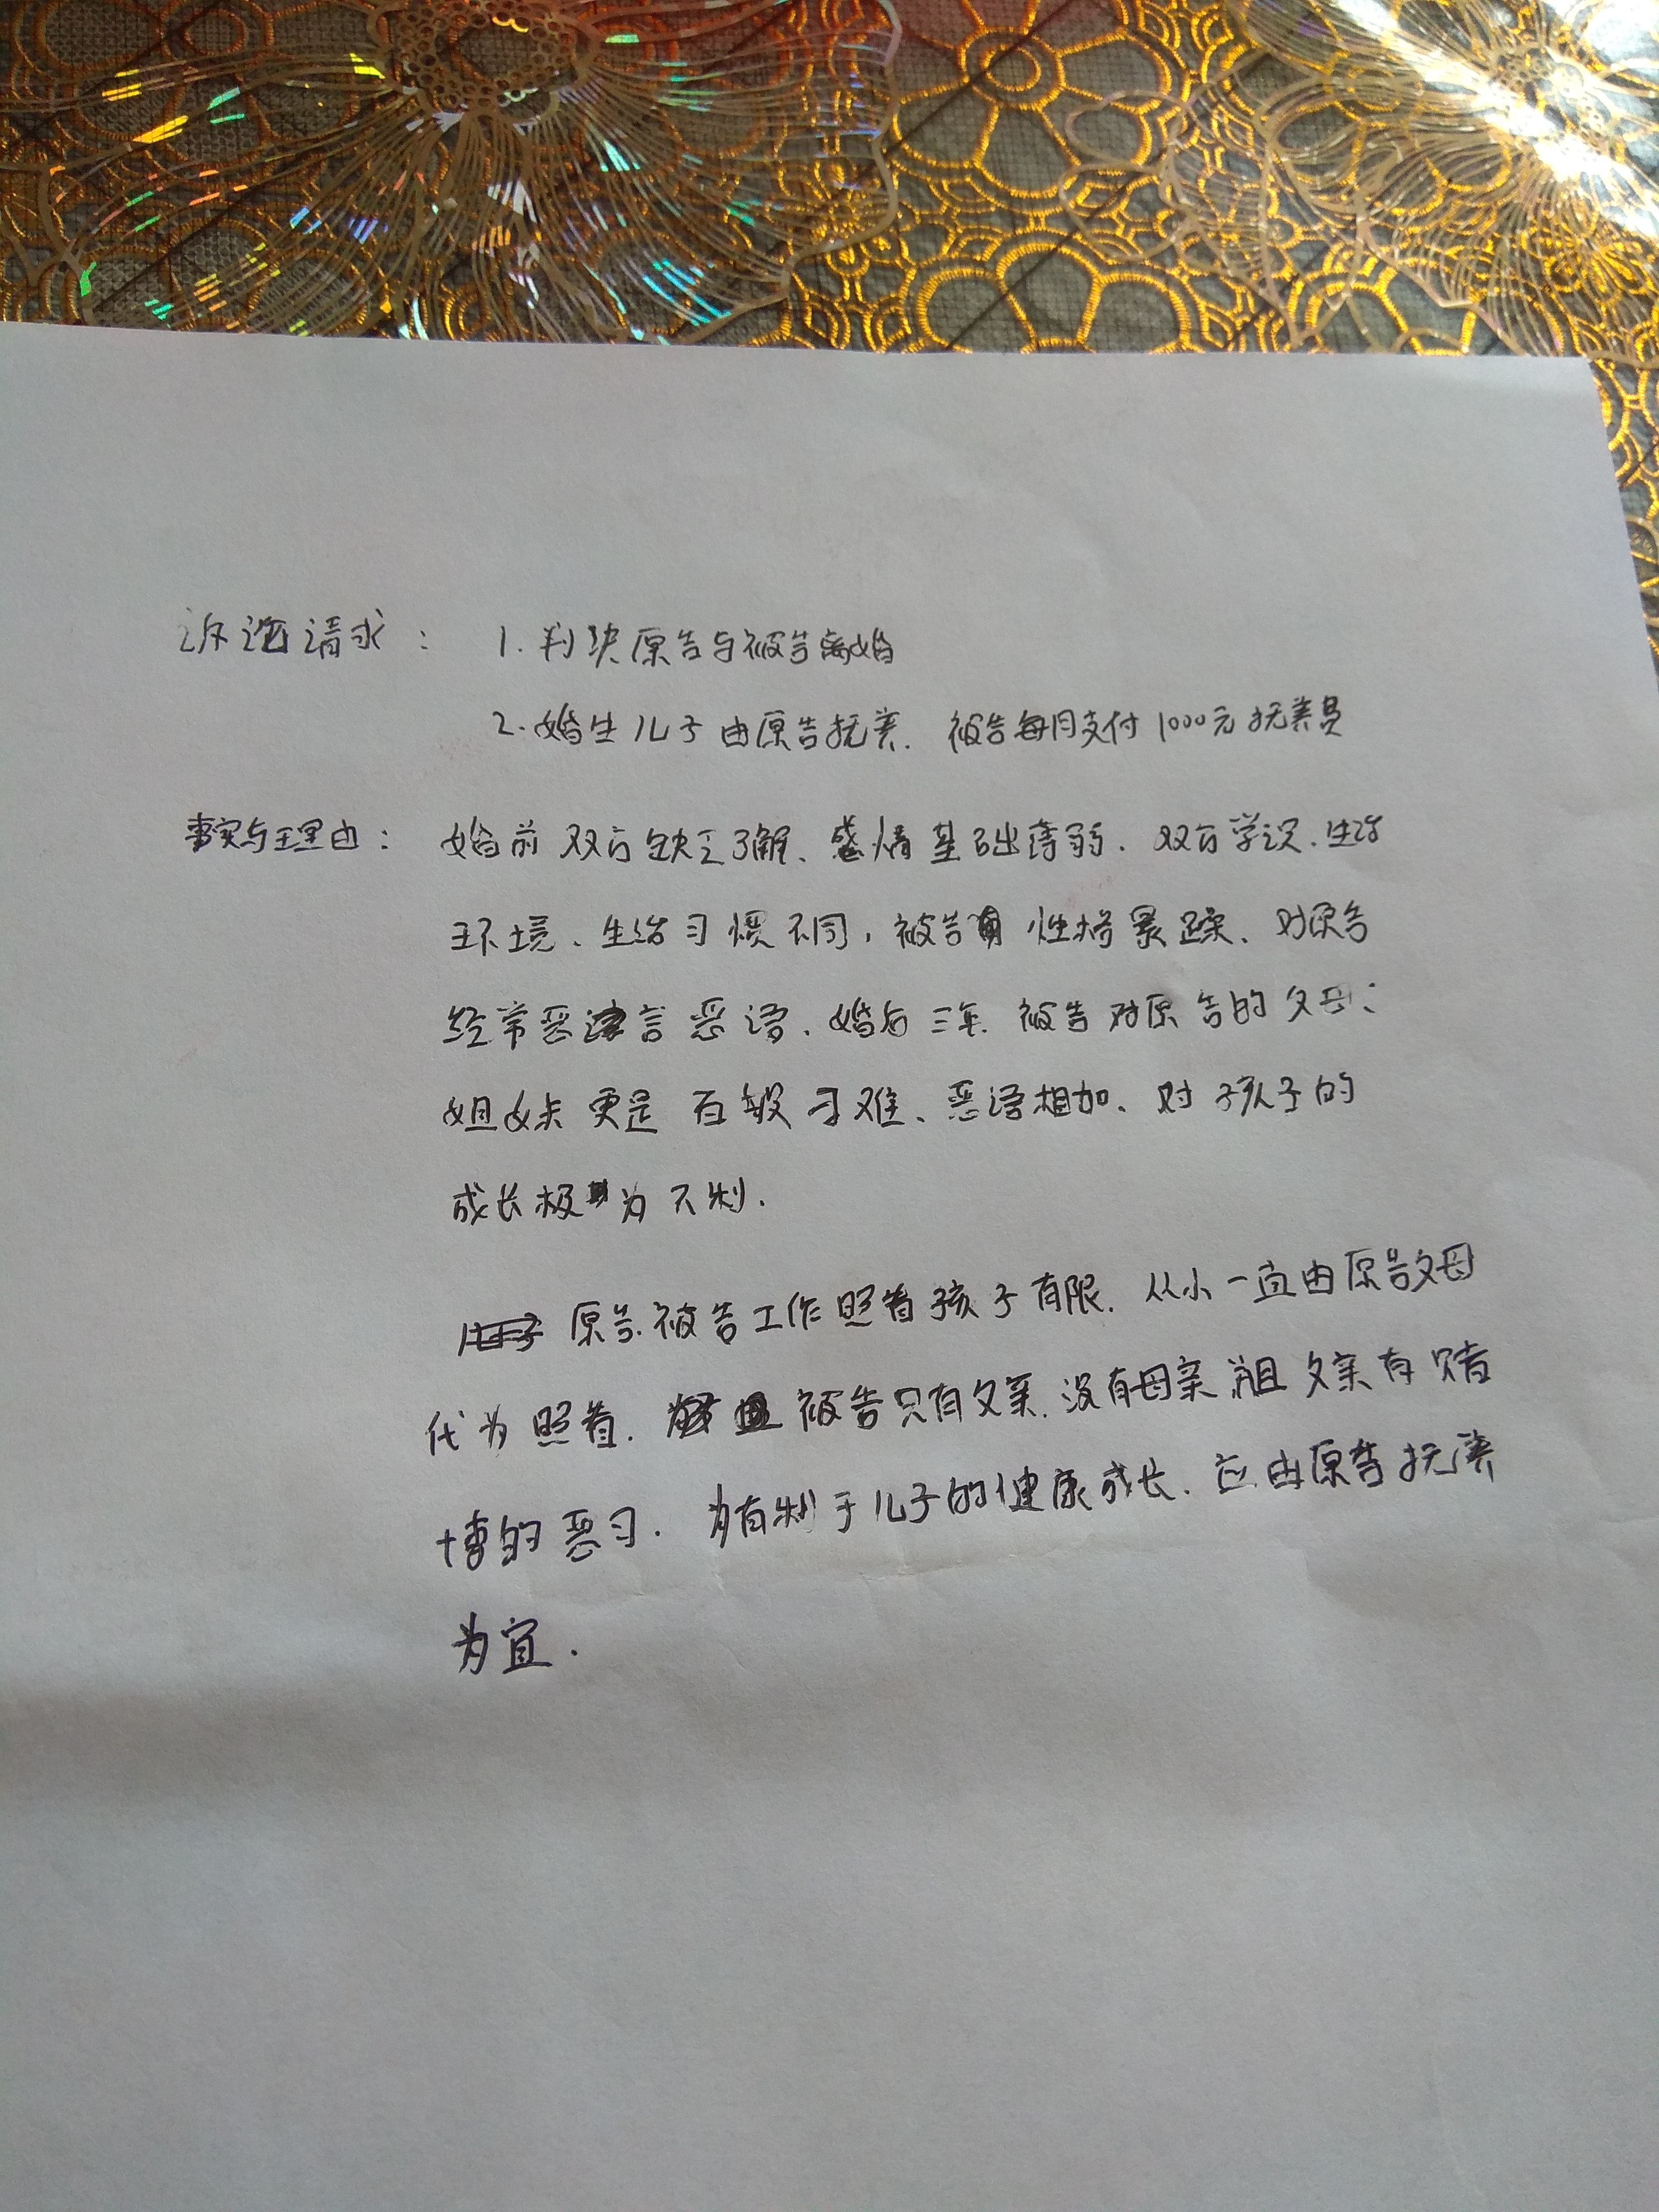 诉讼请求： 1. 判决原告与被告离婚
2. 婚生儿子由原告抚养. 被告每月支付1000元抚养费
事实与理由： 婚前双方缺乏了解、感情基础薄弱. 双方学识. 生活
环境、生活习惯不同, 被告 性格暴躁、对原告
经常恶言恶语、婚后三年 被告对原告的父母、
姐妹更是百般刁难、恶语相加、对孩子的
成长极为不利.
原告. 被告工作照看孩子有限. 从小一直由原告父母
代为照看. 被告只有父亲. 没有母亲 且父亲有赌
博的恶习. 为有利于儿子的健康成长. 应由原告抚养
为宜.